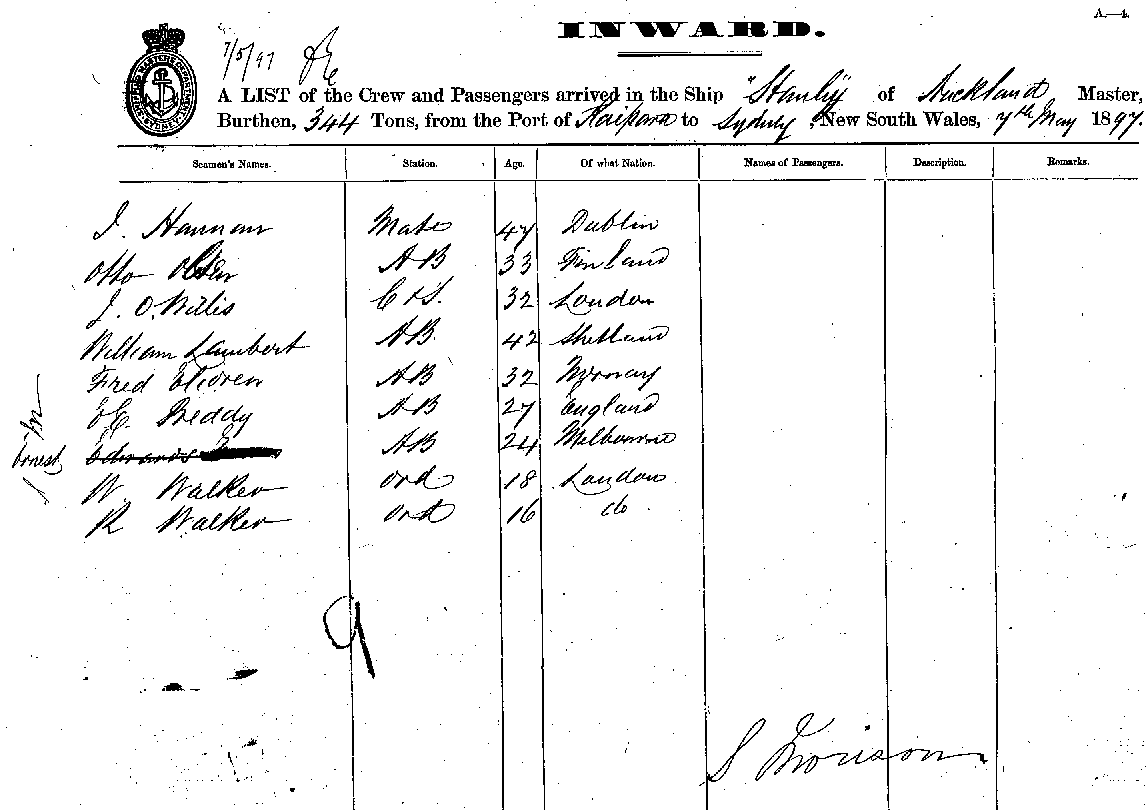 A.—4.
INWARD.
7/5/97
A LIST of the Crew and Passengers arrived in the Ship "Stanley" of Auckland Master,
Burthen, 344 Tons, from the Port of Kaipara to Sydney, New South Wales, 7th May 1897.
Seamen's Names. Station. Age. Of what Nation. Names of Passengers. Description. Remarks.
J. Hannan Mate 47 Dublin
Otto Olsen AB 33 Finland
J. O. Willis C & S. 32 London
William Lambert AB. 42 Shetland
Fred AB 32 Norway
Preddy AB 27 England
Ernest Edwards AB 24 Melbourne
W. Walker ord 18 London
R Walker ord 16 do
9
S